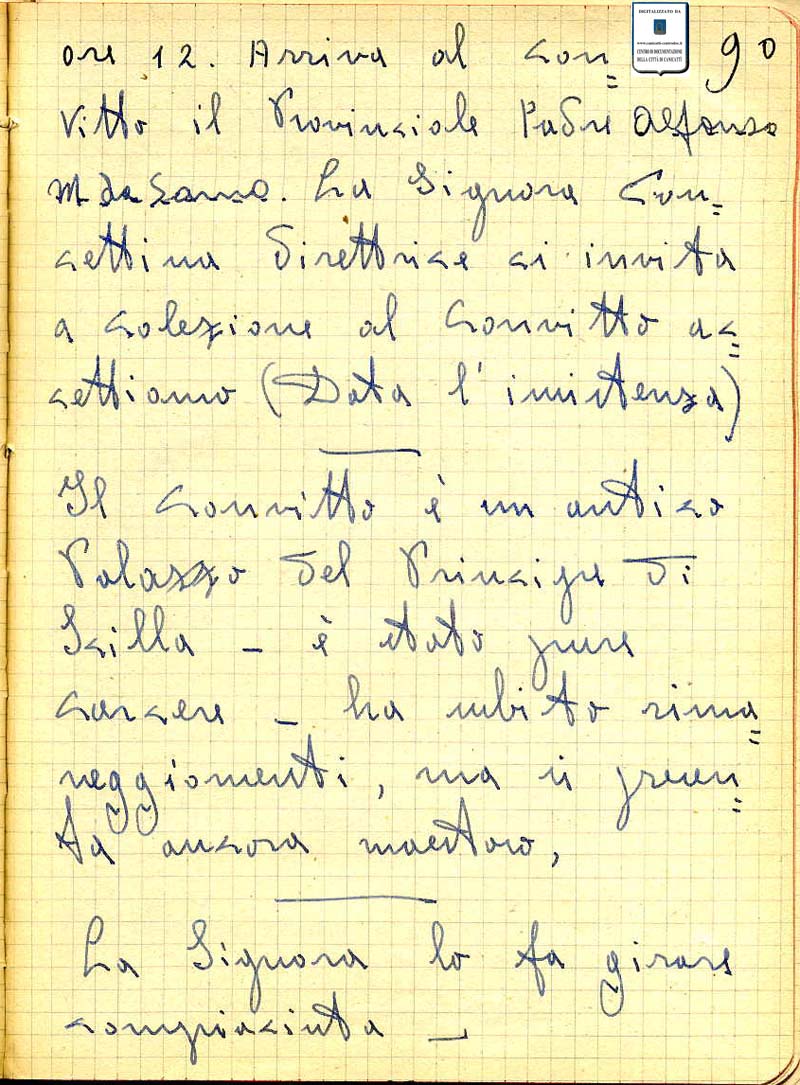 DIGITALIZZATO DA
CENTRO DI DOCUMENTAZIONE
DELLA CITTÀ DI CANICATTÌ
90
ore 12. Arriva al con=
vitto il Provinciale Padre Alfonso
M da Sarno. La Signora Con=
cettina Direttrice ci invita
a colezione al Convitto ac=
cettiamo (Data l'insistenza)
Il Convitto è un antico
Palazzo del Principe di
Scilla – è stato pure
carcere – ha subito rima=
neggiamenti, ma si presen=
ta ancora maestoso,
La Signora lo fa girare
compiaciuta –